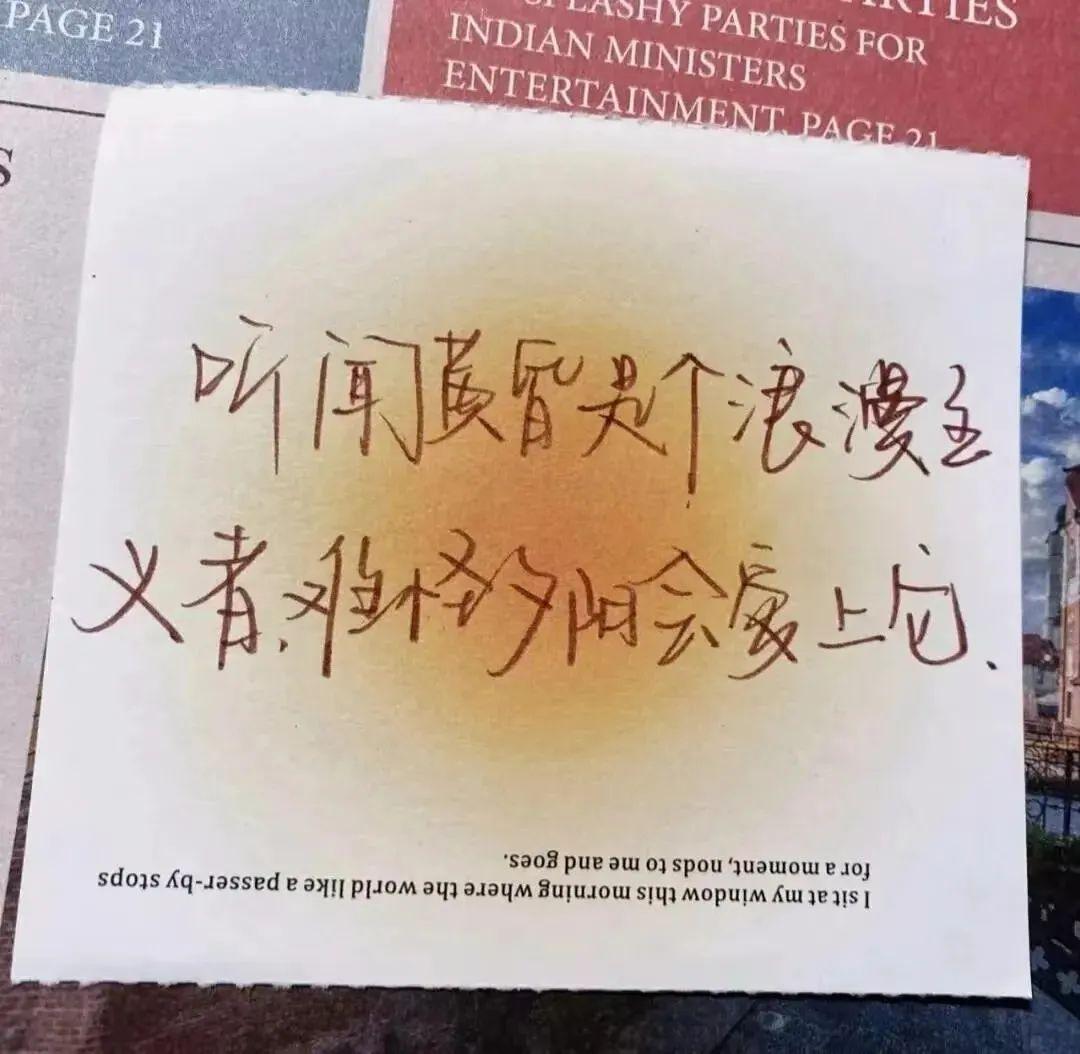 PAGE 21
SPLASHY PARTIES FOR
INDIAN MINISTERS
ENTERTAINMENT, PAGE 21
听闻黄昏是个浪漫主
义者,难怪夕阳会爱上它.
I sit at my window this morning where the world like a passer-by stops
for a moment, nods to me and goes.